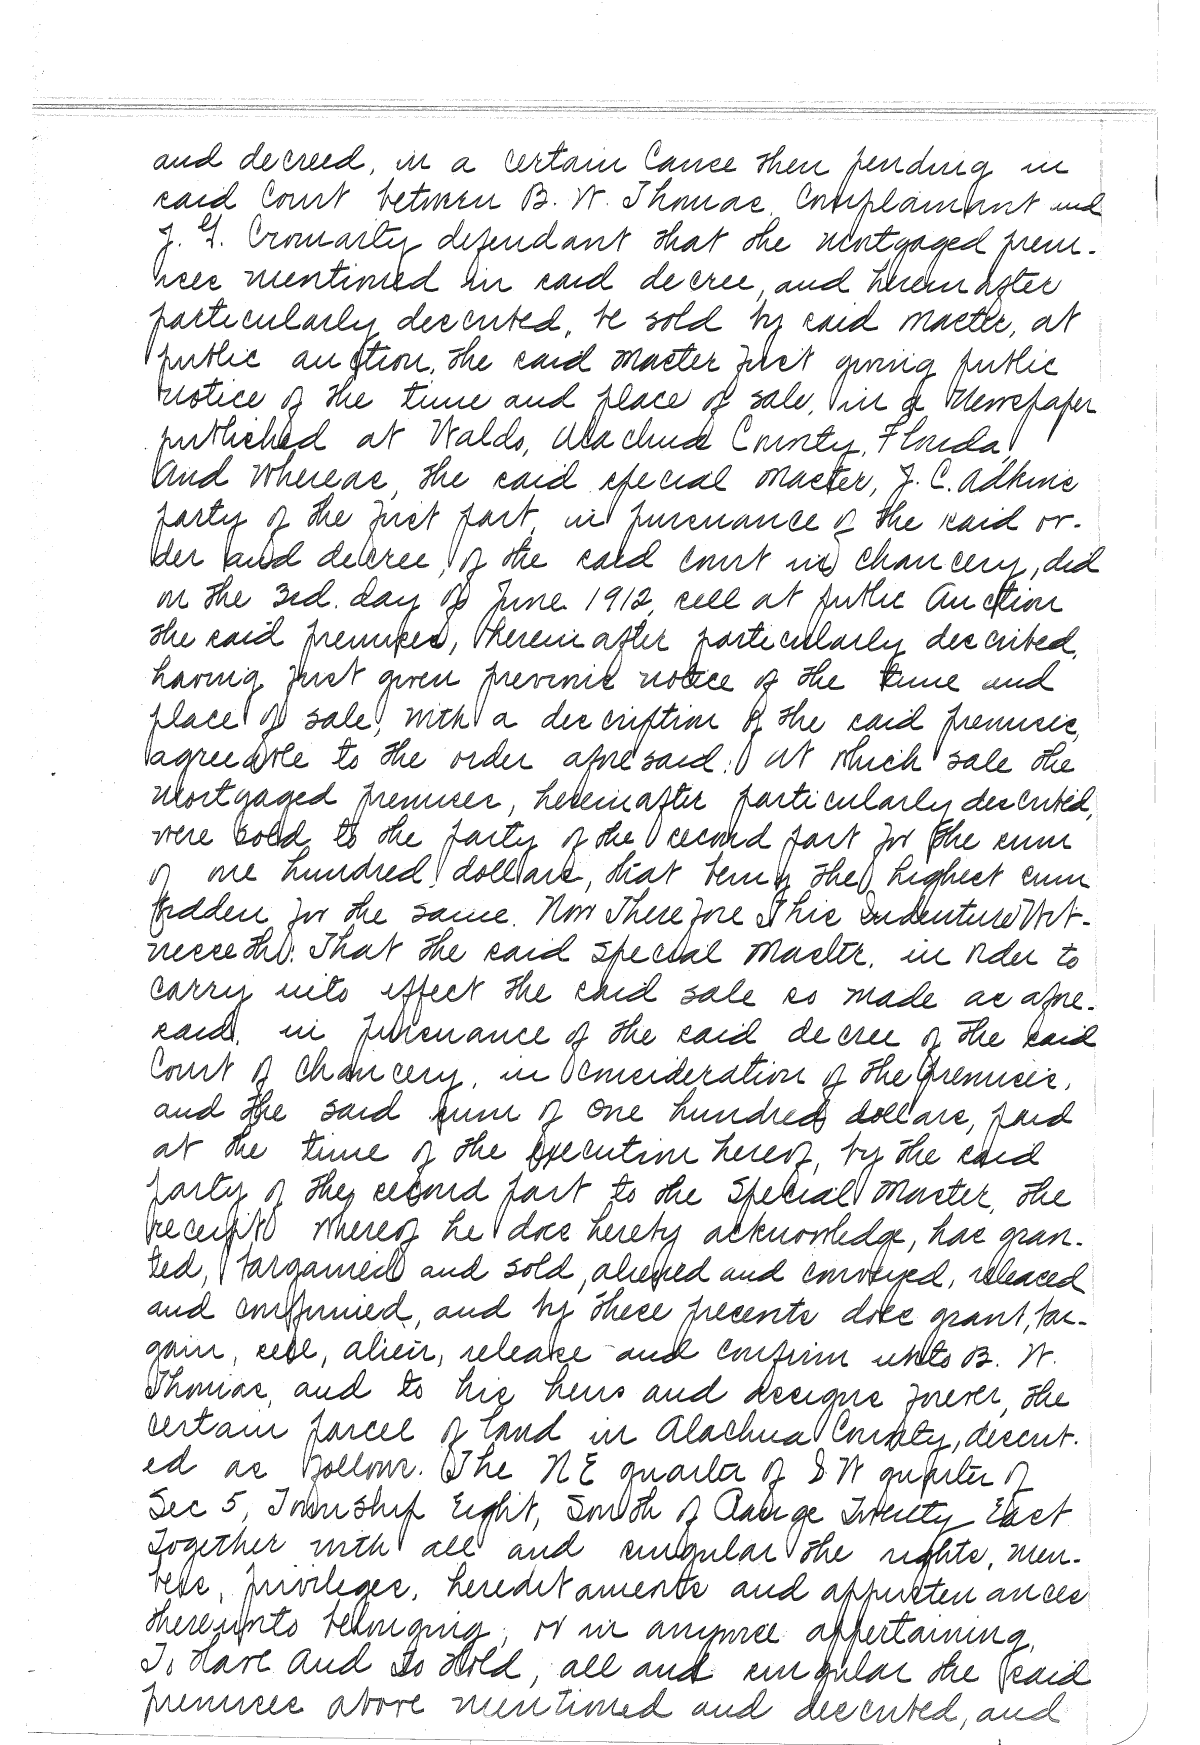 and decreed, in a certain Cause then pending in
said Court between B. W. Thomas Complainant and
J. G. Cromarty defendant that the mortgaged prem-
ises mentioned in said decree, and hereinafter
particularly described, be sold by said Master, at
public auction, the said Master first giving public
notice of the time and place of sale, in a Newspaper
published at Waldo, Alachua County, Florida,
And Whereas, the said special Master, J. C. Adkins
party of the first part, in pursuance of the said or-
der and decree, of the said Court in Chancery, did
on the 3rd. day of June 1912, sell at public Auction
the said premises, herein after particularly described,
having first given previous notice of the time and
place of sale, with a description of the said premises,
agreeable to the order aforesaid; at which sale the
mortgaged premises, hereinafter particularly described,
were sold to the party of the second part for the sum
of one hundred dollars, that being the highest sum
bidden for the same. Now Therefore This Indenture Wit-
nesseth: That the said Special Master, in order to
carry into effect the said sale so made as afore-
said, in pursuance of the said decree of the said
Court of Chancery, in consideration of the premises,
and the said sum of One hundred dollars, paid
at the time of the execution hereof, by the said
party of the second part to the Special Master, the
receipt whereof he does hereby acknowledge, has gran-
ted, bargained and sold, aliened and conveyed, released
and confirmed, and by these presents does grant, bar-
gain, sell, alien, release and confirm unto B. W.
Thomas, and to his heirs and assigns forever, the
certain parcel of land in Alachua County, describ-
ed as follows. The N E quarter of S W quarter of
Sec 5, Township Eight, South of Range Twenty East
Together with all and singular the rights, mem-
bers, privileges, hereditaments and appurtenances
thereunto belonging, or in anywise appertaining,
To Have And To Hold, all and singular the said
premises above mentioned and described, and